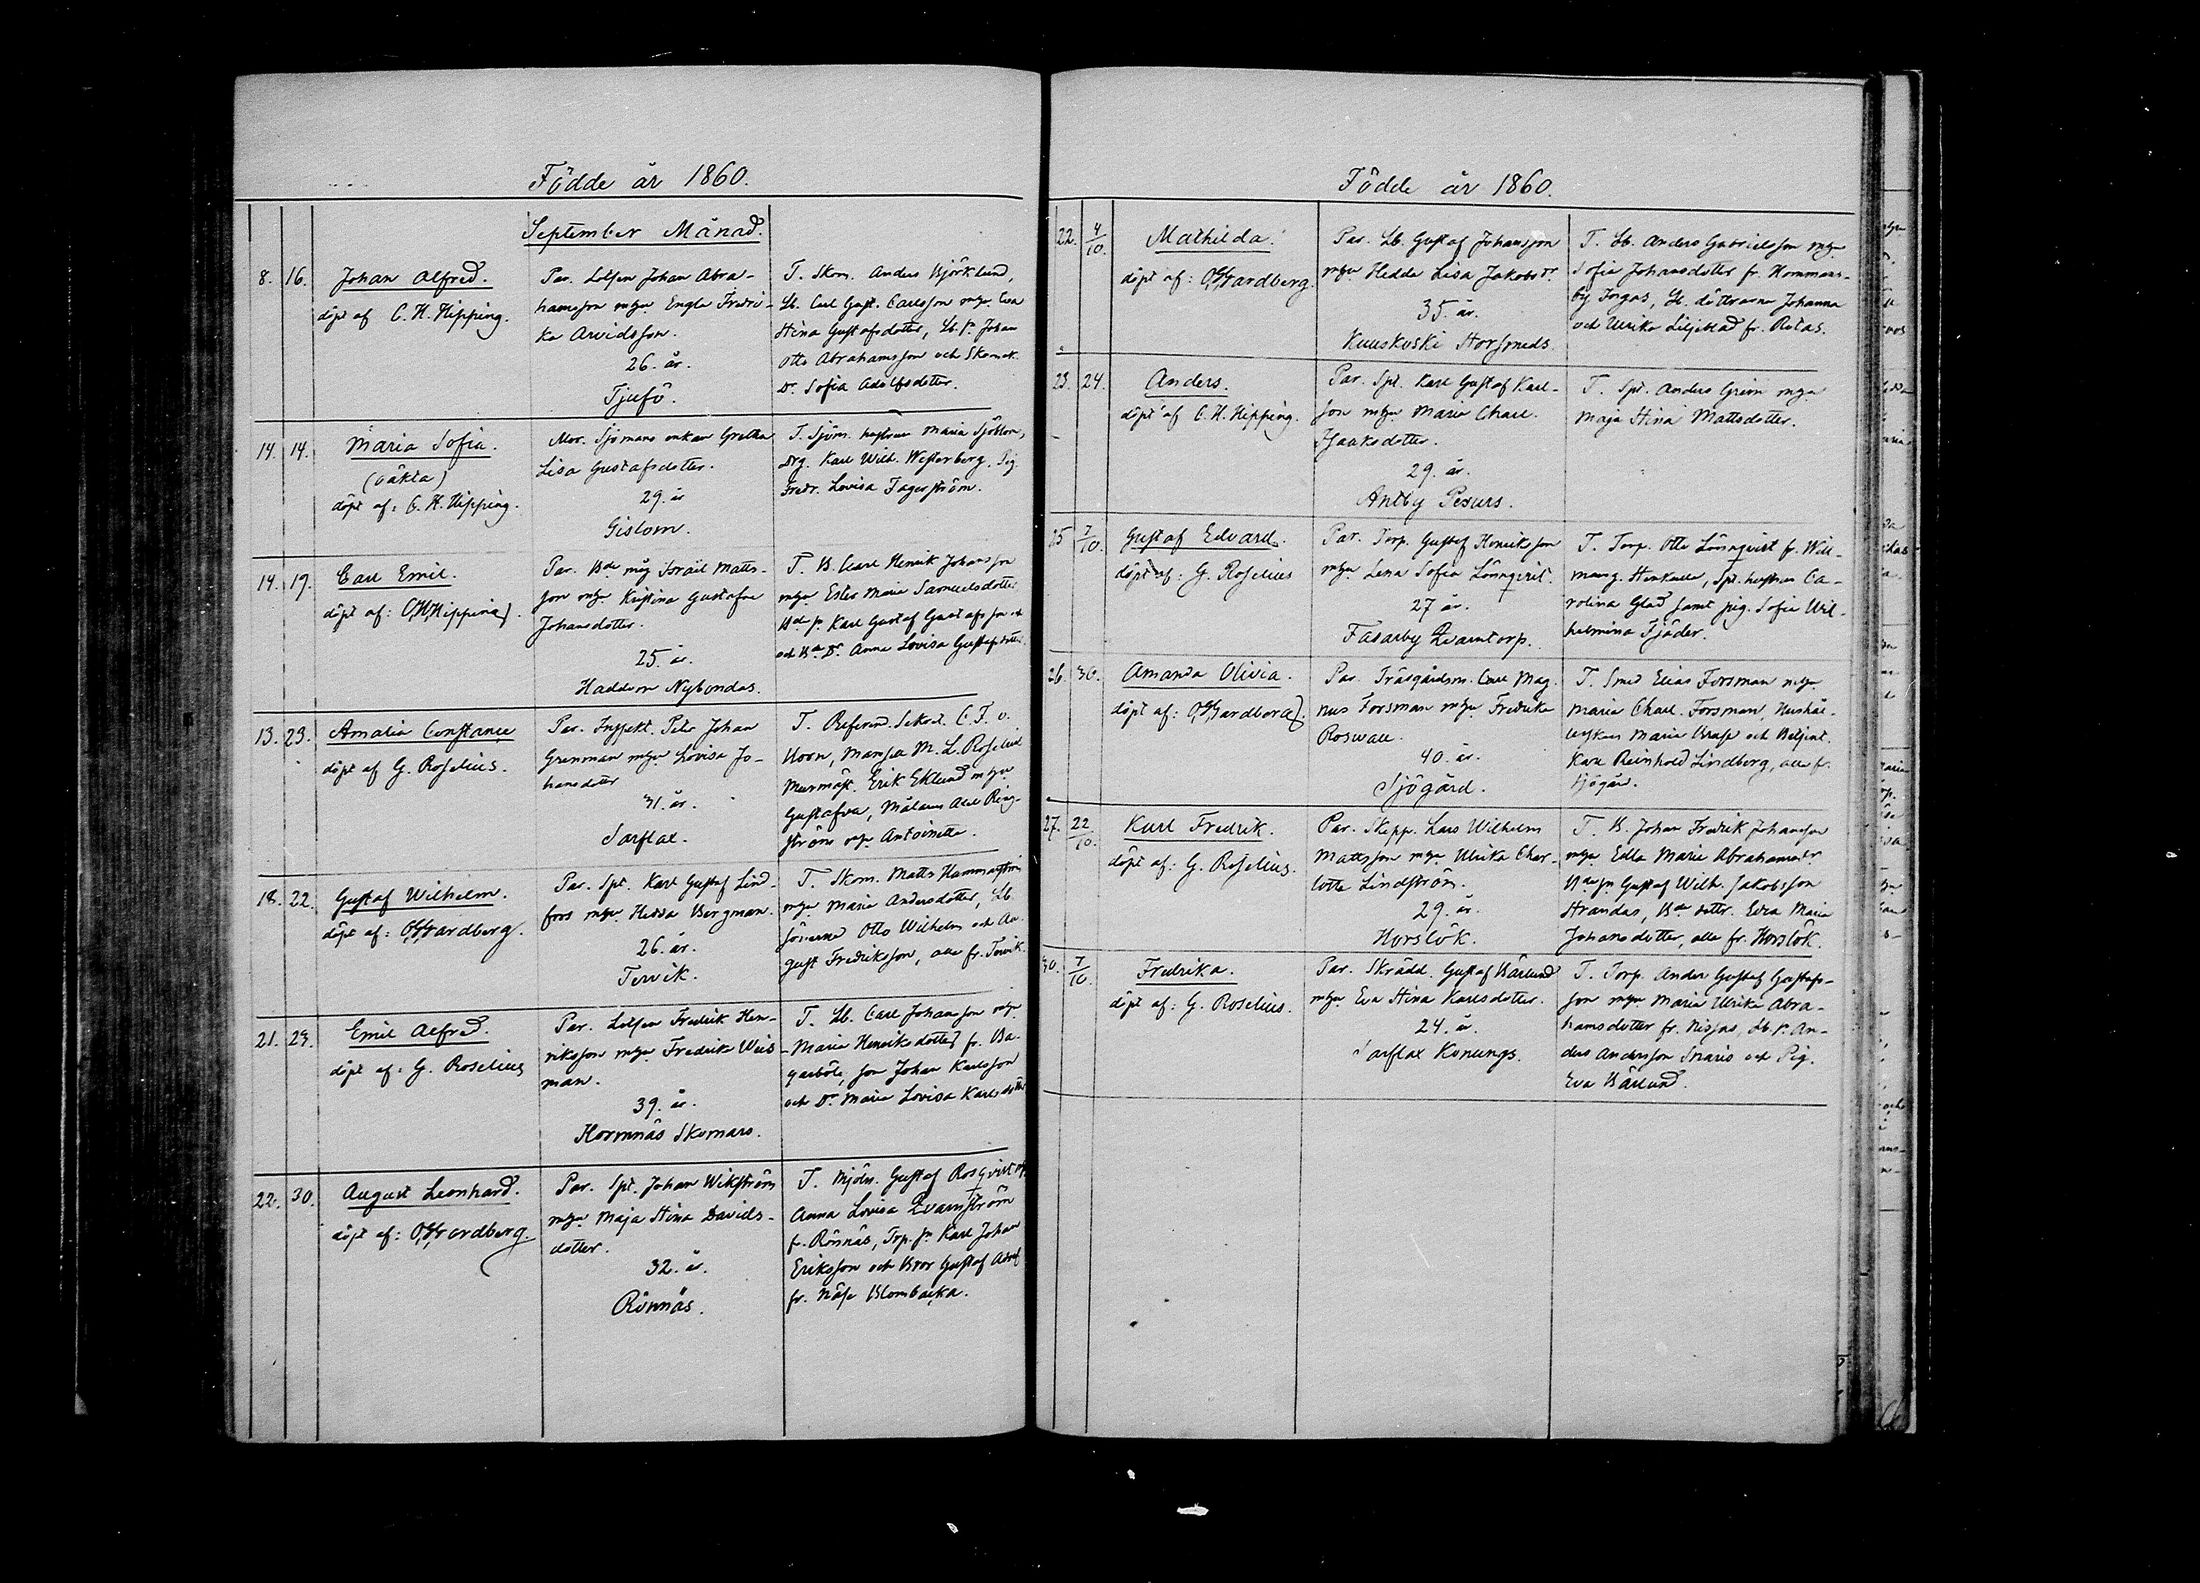 Födde år 1860.
September Månad.
8. 16. Johan Alfred.
döpt af C. H. Hipping.
Par. Lotsen Johan Abra-
hamsson mhu Engla Fredri-
ka Arvidsson.
26. år.
Tjufö.
T. Skom. Anders Björklund,
Lb. Carl Gust. Carlsson mhu. Eva
Stina Gustafsdotter, Lb. sn Johan
Otto Abrahamsson och
Dr. Sofia Adolfsdotter.
14. 14. Maria Sofia.
(oäkta)
döpt af: C. H. Hipping.
Mor. Sjömans enkan Gretha
Lisa Gustafsdotter.
29. år
Gislom.
T. Sjöm. hustrun Maria Sjöblom,
Drg. Karl Wilh. Westerberg, Pig.
Fredr. Lovisa Fagerström.
14. 19. Carl Emil.
döpt af: C. H. Hipping.
Par. Bde måg Israil Matts-
son mhu Kristina Gustafva
Johansdotter.
25. år.
Haddom Nybondas.
T. B. Carl Henrik Johansson
mhu Ester Maria Samuelsdotter
Bde sn Karl Gustaf Gustafsson
och Bde Dr. Anna Lovisa Gustafsdotter.
13. 23. Amalia Constance
döpt af G. Roselius.
Par. Inspekt. Peter Johan
Grenman mhu Lovisa Jo-
hansdotter
31. år.
Sarflax.
T. Referend. Sekret. C. F. v.
Hoon, Mamsell M. L. Roselius
Murmäst. Erik Eklund mhu
Gustafva, Målaren Axel Ring-
ström mhu Antoinette.
18. 22. Gustaf Wilhelm.
döpt af: O. Gardberg.
Par. Spt. Karl Gustaf Lind-
fors mhu Hedda Bergman.
26. år.
Tervik.
T. Skom. Matts Hammarström
mhu Maria Andersdotter, Lb
sönerne Otto Wilhelm och Au-
gust Fredriksson, alla fr. Tervik.
21. 23. Emil Alfred.
döpt af: G. Roselius
Par. Lotsen Fredrik Hen-
riksson mhu Fredrika Weis
man.
39. år.
Hormnäs Skomars.
T. Lb. Carl Johansson mhu
Maria Henriksdotter fr. Ba-
garböle, son Johan Karlsson
och Dr. Maria Lovisa Karlsdotter
22. 30. August Leonhard.
döpt af: O. Gardberg.
Par. Spt. Johan Wikström
mhu Maja Stina Davids-
dotter.
32. år.
Rönnäs.
T. Mjöln. Gustaf Rosqvist mhu
Anna Lovisa Qvarnström
fr. Rönnäs, Trp. sn Karl Johan
Eriksson och Bror Gustaf Adolf
fr. Näse Blombacka.
Födde år 1860.
22. 4/10. Mathilda.
döpt af: O. Gardberg.
Par. Lb. Gustaf Johansson
mhu Hedda Lisa Jakobsdr
35. år.
Kuuskoski Storsmeds.
T. Lb. Anders Gabrielsson mhu
Sofia Johansdotter fr. Hommans-
by Ingas, Lb. döttrarna Johanna
och Ulrika Liljeblad fr. Rolas.
23. 24. Anders.
döpt af C. H. Hipping.
Par. Spt. Karl Gustaf Karl-
son mhu Maria Charl.
Isaksdotter.
29. år.
Antby Pesurs.
T. Spt. Anders Grim mhu
Maja Stina Mattsdotter.
25 7/10. Gustaf Edvard.
döpt af: G. Roselius
Par. Torp. Gustaf Henriksson
mhu Lena Sofia Lönnqvist.
27 år.
Fasarby Qvarntorp.
T. Torp. Otto Lönnqvist fr. Will-
mang. Henkulla, Spt. hustrun Ca-
rolina Glad samt pig. Sofia Wil-
helmina Fjäder.
26. 30. Amanda Olivia.
döpt af: O. Gardberg.
Par. Trädgårdsm. Carl Mag-
nus Forsman mhu Fredrika
Roswall.
40. år.
Sjögård.
T. Smed Elias Forsman mhu
Maria Charl. Forsman, Hushål-
lerskan Maria Brase och Betjent.
Karl Reinhold Lindberg, alla fr.
Sjögård.
27. 22/10. Karl Fredrik.
döpt af: G. Roselius.
Par. Skepp. Lars Wilhelm
Mattsson mhu Ulrika Char-
lotta Lindström.
29. år.
Horslök.
T. B. Johan Fredrik Johansson
mhu Edla Maria Abrahamsdr
Bde sn Gustaf Wilh. Jakobsson
Strandas, Bde dotter. Edla Maria
Johansdotter, alla fr. Horslök.
30. 7/10. Fredrika.
döpt af: G. Roselius.
Par. Skrädd. Gustaf Bärlund
mhu Eva Stina Karlsdotter.
24. år.
Sarflax Konungs.
T. Torp. Anders Gustaf Gustafs-
son mhu Maria Ulrika Abra-
hamsdotter fr. Nissas, Lb. sn An-
ders Andersson Snaris och Pig.
Eva Bärlund.